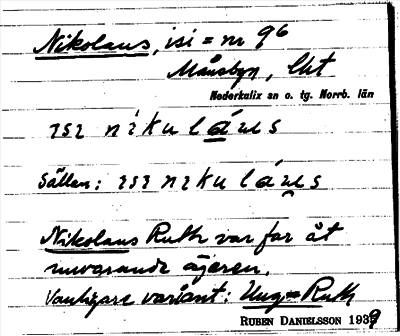 Nikolaus, isi = nr 96
Månsbyn, Lht
Nederkalix sn o. tg. Norrb. län
ısı nìkuláus
Sällan: ısı nıkuláus
Nikolaus Ruth var far åt
nuvarande ägaren.
Vanligare variant: Ung=Ruth
RUBEN DANIELSSON 1939